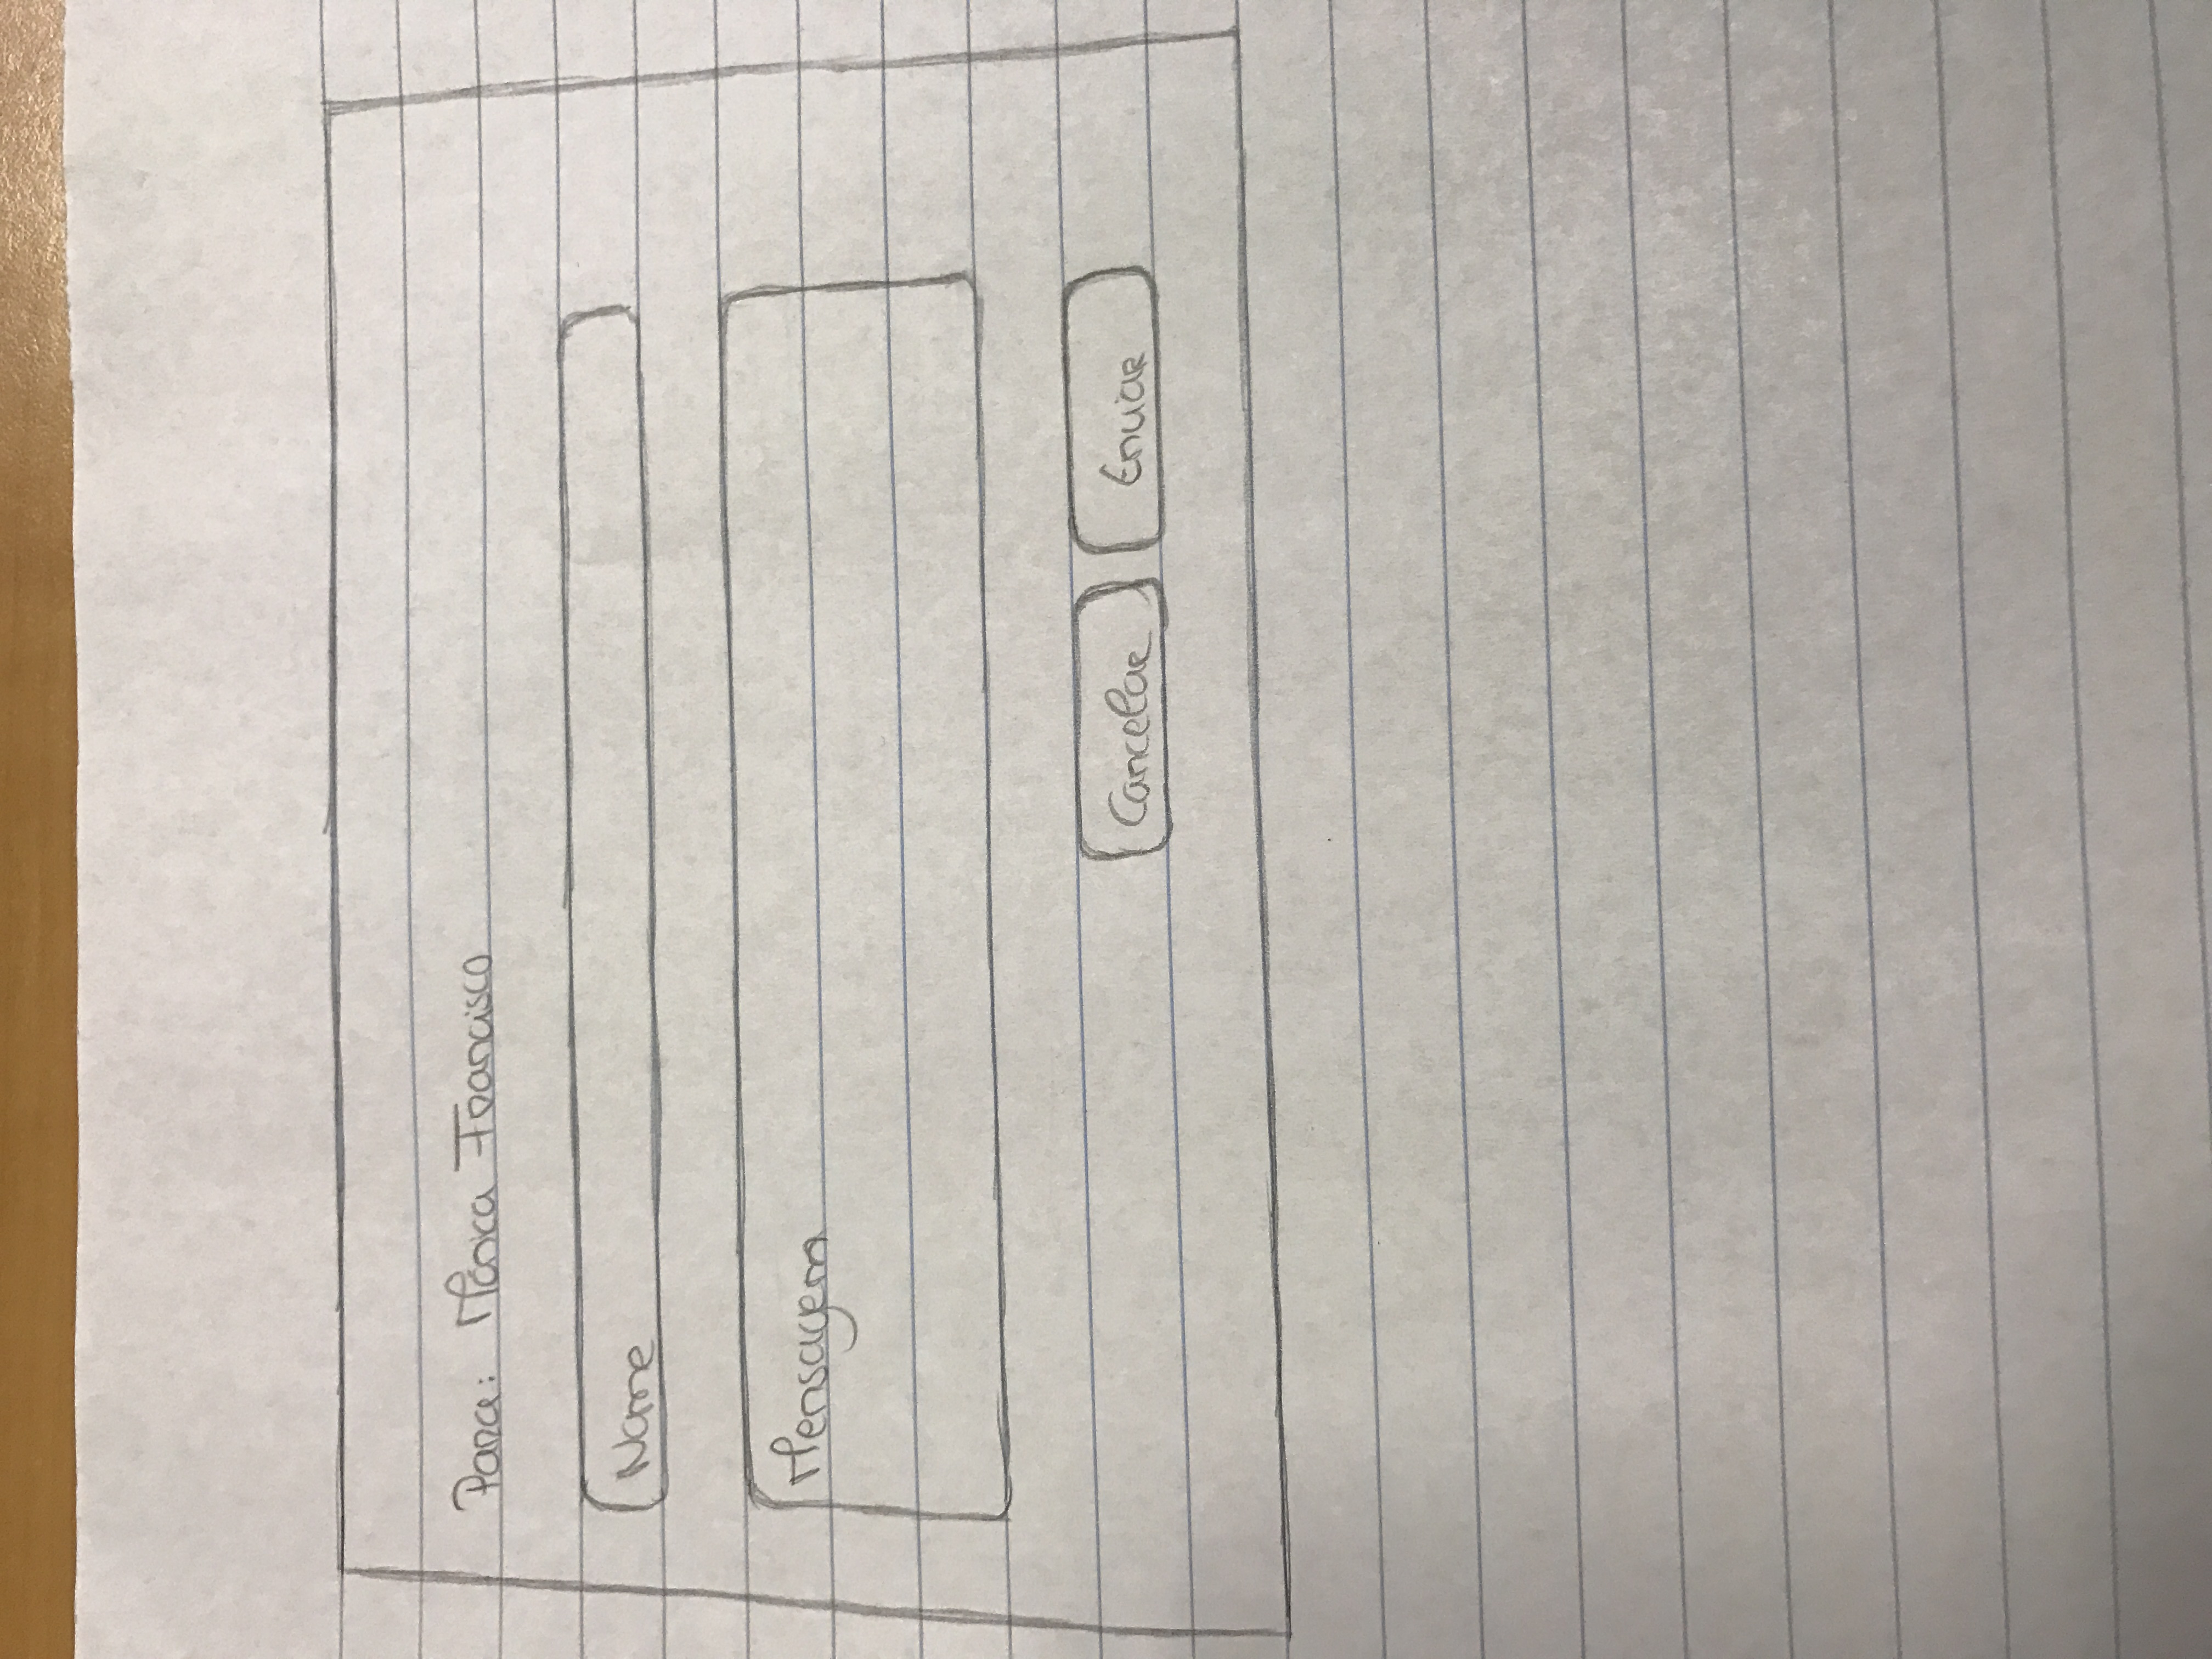 Para: Mónica Francisco
Name
Mensagem
Cancelar Enviar